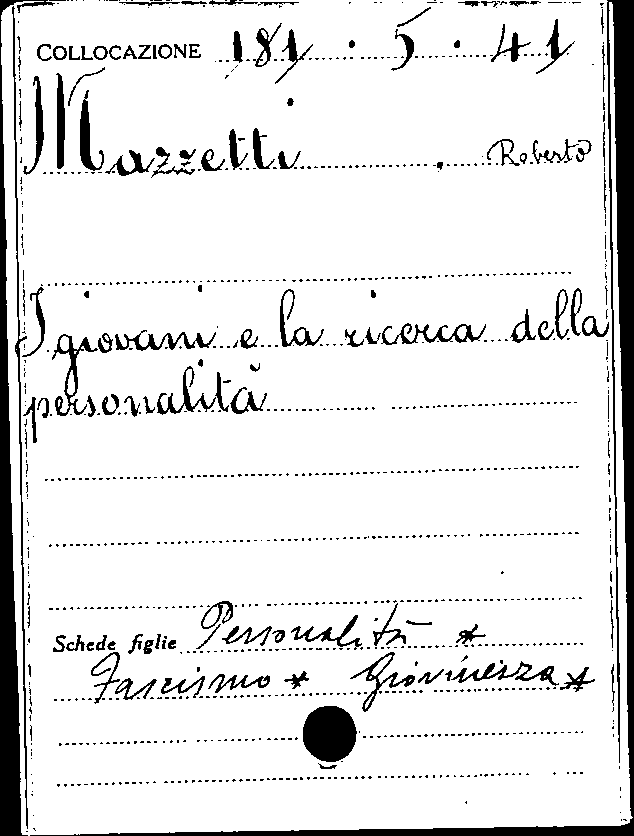 COLLOCAZIONE 181 · 5 · 41
Mazzetti, Roberto
I giovani e la ricerca della
personalità
Schede figlie Personalità *
Fascismo * Giovinezza *